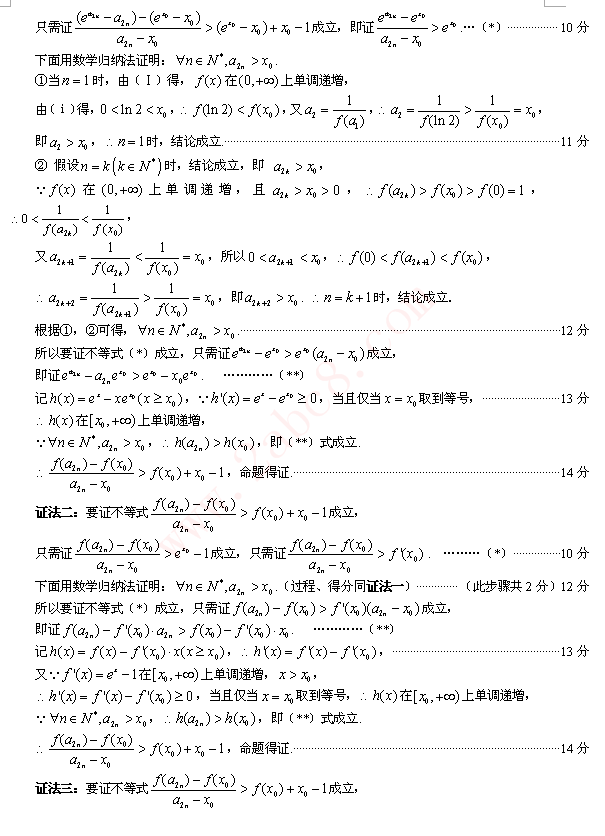 只需证 \frac{(e^{a_{2n}}-a_{2n})-(e^{x_0}-x_0)}{a_{2n}-x_0}>(e^{x_0}-x_0)+x_0-1成立，即证\frac{e^{a_{2n}}-e^{x_0}}{a_{2n}-x_0}>e^{x_0}.…（*）……………10 分
下面用数学归纳法证明：∀n∈N^*,a_{2n}>x_0.
①当n=1时，由（Ⅰ）得，f(x)在(0,+∞)上单调递增，
由(ⅰ)得,0<ln 2<x_0,∴f(ln 2)<f(x_0),又a_2=\frac{1}{f(a_1)},∴a_2=\frac{1}{f(ln 2)}>\frac{1}{f(x_0)}=x_0,
即a_2>x_0，∴n=1时，结论成立.……………11 分
② 假设n=k(k∈N^*)时，结论成立，即 a_{2k}>x_0,
∵f(x) 在 (0,+∞) 上单调递增，且 a_{2k}>x_0>0，∴f(a_{2k})>f(x_0)>f(0)=1，
∴0<\frac{1}{f(a_{2k})}<\frac{1}{f(x_0)},
又a_{2k+1}=\frac{1}{f(a_{2k})}<\frac{1}{f(x_0)}=x_0，所以0<a_{2k+1}<x_0，∴f(0)<f(a_{2k+1})<f(x_0)，
∴a_{2k+2}=\frac{1}{f(a_{2k+1})}>\frac{1}{f(x_0)}=x_0，即a_{2k+2}>x_0.∴n=k+1时，结论成立.
根据①，②可得，∀n∈N^*,a_{2n}>x_0.……………12 分
所以要证不等式（*）成立，只需证e^{a_{2n}}-e^{x_0}>e^{x_0}(a_{2n}-x_0)成立，
即证e^{a_{2n}}-a_{2n}e^{x_0}>e^{x_0}-x_0e^{x_0}. …………（**）
记h(x)=e^x-xe^{x_0}(x≥x_0)，∵h'(x)=e^x-e^{x_0}≥0，当且仅当x=x_0取到等号，……………13 分
∴h(x)在[x_0,+∞)上单调递增，
∵∀n∈N^*,a_{2n}>x_0，∴h(a_{2n})>h(x_0)，即（**）式成立.
∴\frac{f(a_{2n})-f(x_0)}{a_{2n}-x_0}>f(x_0)+x_0-1，命题得证.……………14 分
证法二：要证不等式\frac{f(a_{2n})-f(x_0)}{a_{2n}-x_0}>f(x_0)+x_0-1成立，
只需证\frac{f(a_{2n})-f(x_0)}{a_{2n}-x_0}>e^{x_0}-1成立，只需证\frac{f(a_{2n})-f(x_0)}{a_{2n}-x_0}>f'(x_0). ………（*）……………10分
下面用数学归纳法证明：∀n∈N^*,a_{2n}>x_0.（过程、得分同证法一）…………（此步骤共2分）12分
所以要证不等式（*）成立，只需证f(a_{2n})-f(x_0)>f'(x_0)(a_{2n}-x_0)成立，
即证f(a_{2n})-f'(x_0)·a_{2n}>f(x_0)-f'(x_0)·x_0. …………（**）
记h(x)=f(x)-f'(x_0)·x(x≥x_0)，∴h'(x)=f'(x)-f'(x_0)，……………13 分
又∵f'(x)=e^x-1在[x_0,+∞)上单调递增，x>x_0，
∴h'(x)=f'(x)-f'(x_0)≥0，当且仅当x=x_0取到等号，∴h(x)在[x_0,+∞)上单调递增，
∵∀n∈N^*,a_{2n}>x_0，∴h(a_{2n})>h(x_0)，即（**）式成立.
∴\frac{f(a_{2n})-f(x_0)}{a_{2n}-x_0}>f(x_0)+x_0-1，命题得证.……………14 分
证法三：要证不等式\frac{f(a_{2n})-f(x_0)}{a_{2n}-x_0}>f(x_0)+x_0-1成立，